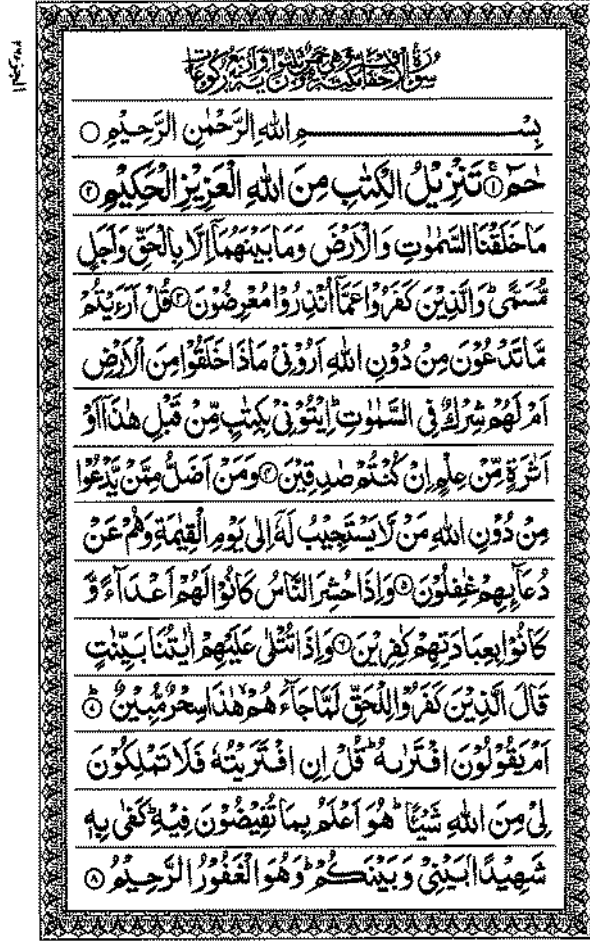 سُوْرَةُ الْاَحْقَافِ مَكِّيَّةٌ وَّهِيَ خَمْسٌ وَّثَلٰثُوْنَ اٰيَةً وَّاَرْبَعُ رُكُوْعَاتٍ
بِسْــــــمِ اللّٰهِ الرَّحْمٰنِ الرَّحِيْمِ ○
حٰمٓ ۚ﴿۱﴾ تَنْزِيْلُ الْكِتٰبِ مِنَ اللّٰهِ الْعَزِيْزِ الْحَكِيْمِ ﴿۲﴾
مَا خَلَقْنَا السَّمٰوٰتِ وَالْاَرْضَ وَمَا بَيْنَهُمَاۤ اِلَّا بِالْحَقِّ وَاَجَلٍ
مُّسَمًّى ؕ وَالَّذِيْنَ كَفَرُوْا عَمَّاۤ اُنْذِرُوْا مُعْرِضُوْنَ ﴿۳﴾ قُلْ اَرَءَيْتُمْ
مَّا تَدْعُوْنَ مِنْ دُوْنِ اللّٰهِ اَرُوْنِيْ مَاذَا خَلَقُوْا مِنَ الْاَرْضِ
اَمْ لَهُمْ شِرْكٌ فِي السَّمٰوٰتِ ؕ اِيْتُوْنِيْ بِكِتٰبٍ مِّنْ قَبْلِ هٰذَاۤ اَوْ
اَثٰرَةٍ مِّنْ عِلْمٍ اِنْ كُنْتُمْ صٰدِقِيْنَ ﴿۴﴾ وَمَنْ اَضَلُّ مِمَّنْ يَّدْعُوْا
مِنْ دُوْنِ اللّٰهِ مَنْ لَّا يَسْتَجِيْبُ لَهٗۤ اِلٰى يَوْمِ الْقِيٰمَةِ وَهُمْ عَنْ
دُعَآئِهِمْ غٰفِلُوْنَ ﴿۵﴾ وَاِذَا حُشِرَ النَّاسُ كَانُوْا لَهُمْ اَعْدَآءً وَّ
كَانُوْا بِعِبَادَتِهِمْ كٰفِرِيْنَ ﴿۶﴾ وَاِذَا تُتْلٰى عَلَيْهِمْ اٰيٰتُنَا بَيِّنٰتٍ
قَالَ الَّذِيْنَ كَفَرُوْا لِلْحَقِّ لَمَّا جَآءَهُمْ ۙ هٰذَا سِحْرٌ مُّبِيْنٌ ﴿۷﴾ؕ
اَمْ يَقُوْلُوْنَ افْتَرٰىهُ ؕ قُلْ اِنِ افْتَرَيْتُهٗ فَلَا تَمْلِكُوْنَ
لِيْ مِنَ اللّٰهِ شَيْـًٔا ؕ هُوَ اَعْلَمُ بِمَا تُفِيْضُوْنَ فِيْهِ ؕ كَفٰى بِهٖ
شَهِيْدًۢا بَيْنِيْ وَبَيْنَكُمْ ؕ وَهُوَ الْغَفُوْرُ الرَّحِيْمُ ﴿۸﴾